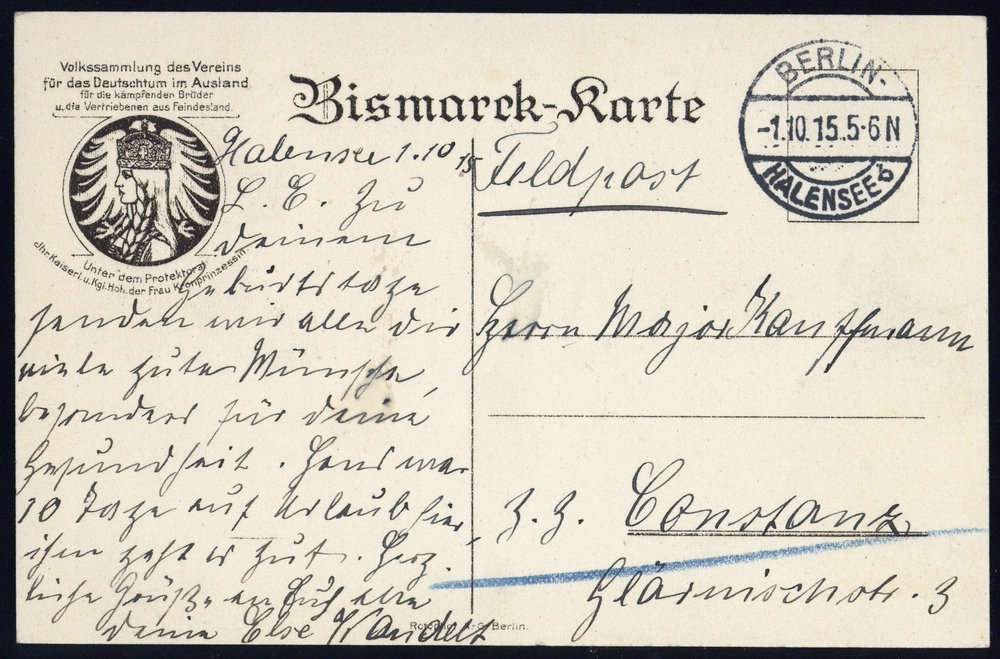 Volkssammlung des Vereins
für das Deutschtum im Ausland
für die kämpfenden Brüder
u. die Vertriebenen aus Feindesland.
Unter dem Protektorat
Ihr. Kaiserl. u. Kgl. Hoh. der Frau Kronprinzessin
Bismarck-Karte
BERLIN-
-1.10.15.5-6N
HALENSEE b
Halensee 1.10 15
L. E. Zu
deinem
Geburtstage
senden wir alle dir
viele gute Wünsche,
besonders für deine
Gesundheit. Hans war
10 Tage auf Urlaub hier,
ihm geht es gut. Herz-
liche Grüße an Euch alle
deine Else Kandelt
Feldpost
Herrn Major Kauffmann
z. Z. Constanz
Glärnischstr. 3
Rotophot A-G. Berlin.